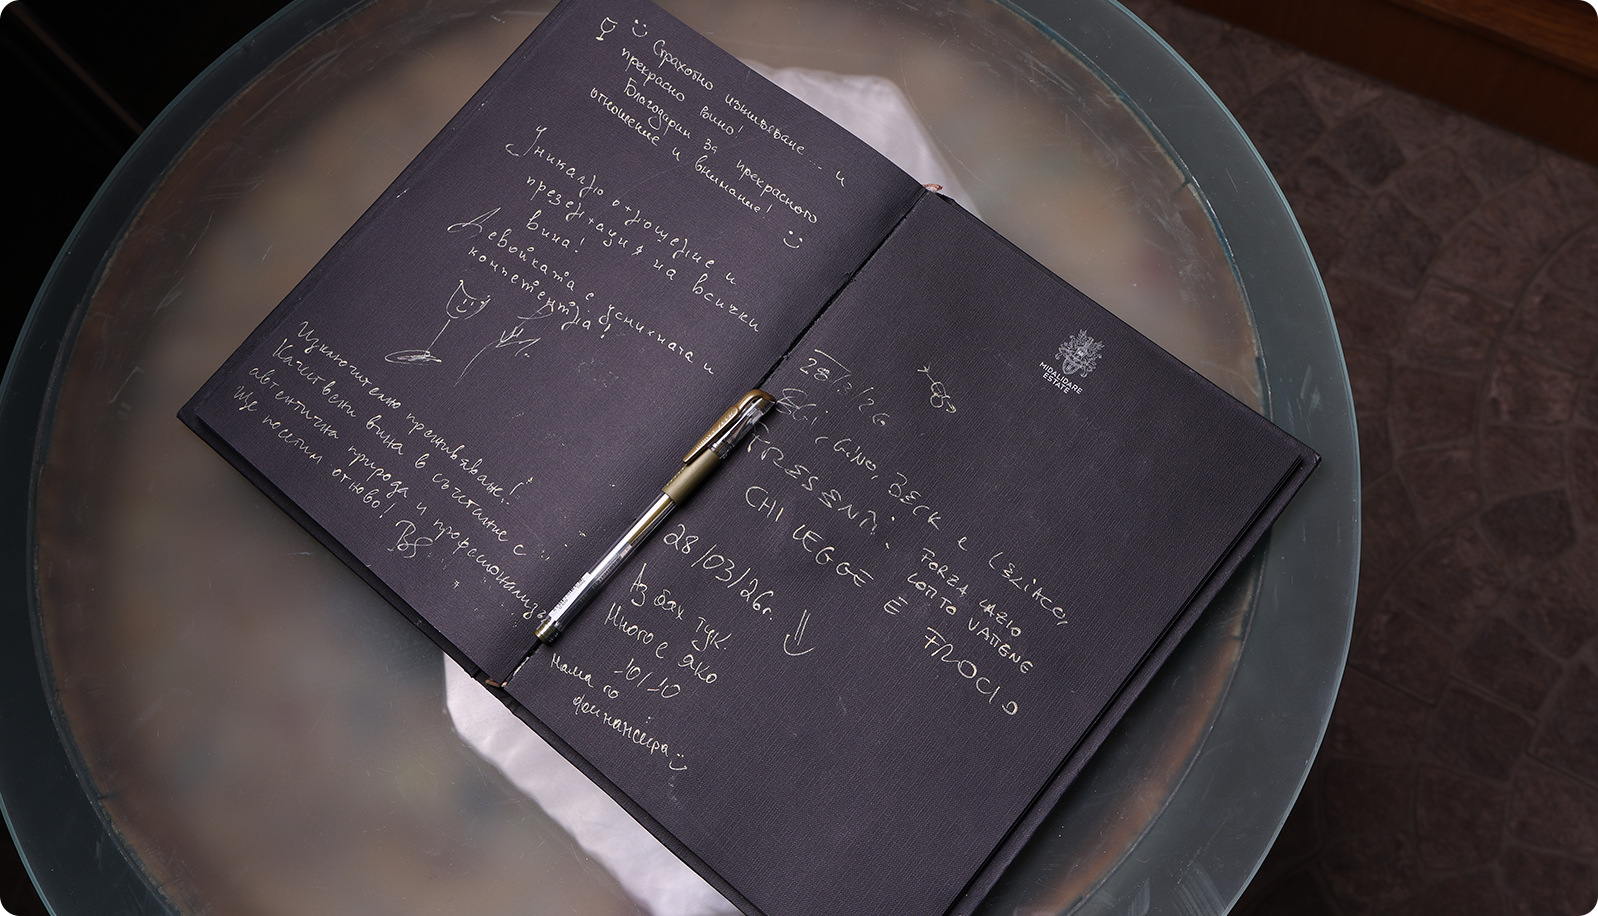 Страхотно изживяване... и
прекрасно вино!
Благодарим за прекрасното
отношение и внимание!
Уникално отношение и
презентация на всички
вина!
Девойката е усмихната и
компетентна!
Изключително преживяване!
Качествени вина в съчетание с
автентична природа и професионализъм
Ще посетим отново!
BS
MIDALIDARE
ESTATE
28/3/26
GINO, BECK e
PRESENTI:
FORZA LAZIO
LOTITO VATTENE
CHI LEGGE È FROCIO
28/03/26г.
Аз бях тук.
Много е яко
10/10
мама го
финансира